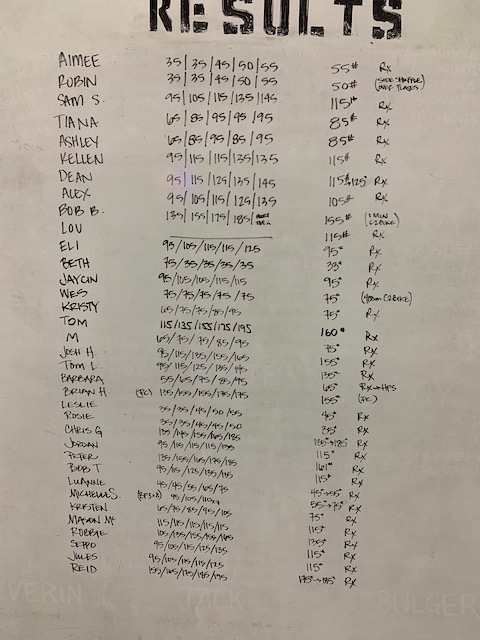 RESULTS
AIMEE 35/35/45/50/55 55# Rx
ROBIN 35/35/45/50/55 50#
SAM S. 95/105/115/135/145 115# Rx
TIANA 65/85/95/95/95 85# Rx
ASHLEY 65/85/95/85/95 85# Rx
KELLEN 95/115/115/135/135 115# Rx
DEAN 95/115/125/135/145 Rx
ALEX 95/105/115/125/135 105# Rx
BOB B. 135/155/175/185/ 155#
LOU 115# Rx
ELI 95/105/115/115/125 95# Rx
BETH 75/35/35/35/35 33# Rx
JAYCIN 95/105/105/115/115 95# Rx
WES 75/75/75/75/75 75#
KRISTY 65/75/75/85/95 75# Rx
TOM 115/135/155/175/195 160# Rx
M 65/75/75/85/95 75# Rx
JOSH H. 95/115/135/155/165 155# Rx
TOM L. 95/115/125/135/145 135# Rx
BARBARA 55/65/75/85/95 65#
BRIAN H (PC) 135/155/155/175/175 155# (PC)
LESLIE 35/35/45/50/55 45# Rx
ROSIE 35/35/45/45/50 35# Rx
CHRIS G 135/145/155/165/185 135#→185# Rx
JORDAN 95/115/115/115/135 115# Rx
PETER 135/155/165/175/185 161# Rx
BOB T 95/115/125/135/135 115# Rx
LUANNE 45/45/55/65/75 45#→55# Rx
MICHELLE S. 95/105/110 55#→75# Rx
KRISTEN 65/75/85/95/105 75# Rx
MASON M 115/115/115/115/115 115# Rx
ROBBIE 105/135/155/155/165 135# Rx
SEPPO 95/105/115/125/135 115# Rx
JULES 95/105/115/115/125 115# Rx
REID 155/165/175/185/195 175#→185# Rx
VERIN JACK BULGER